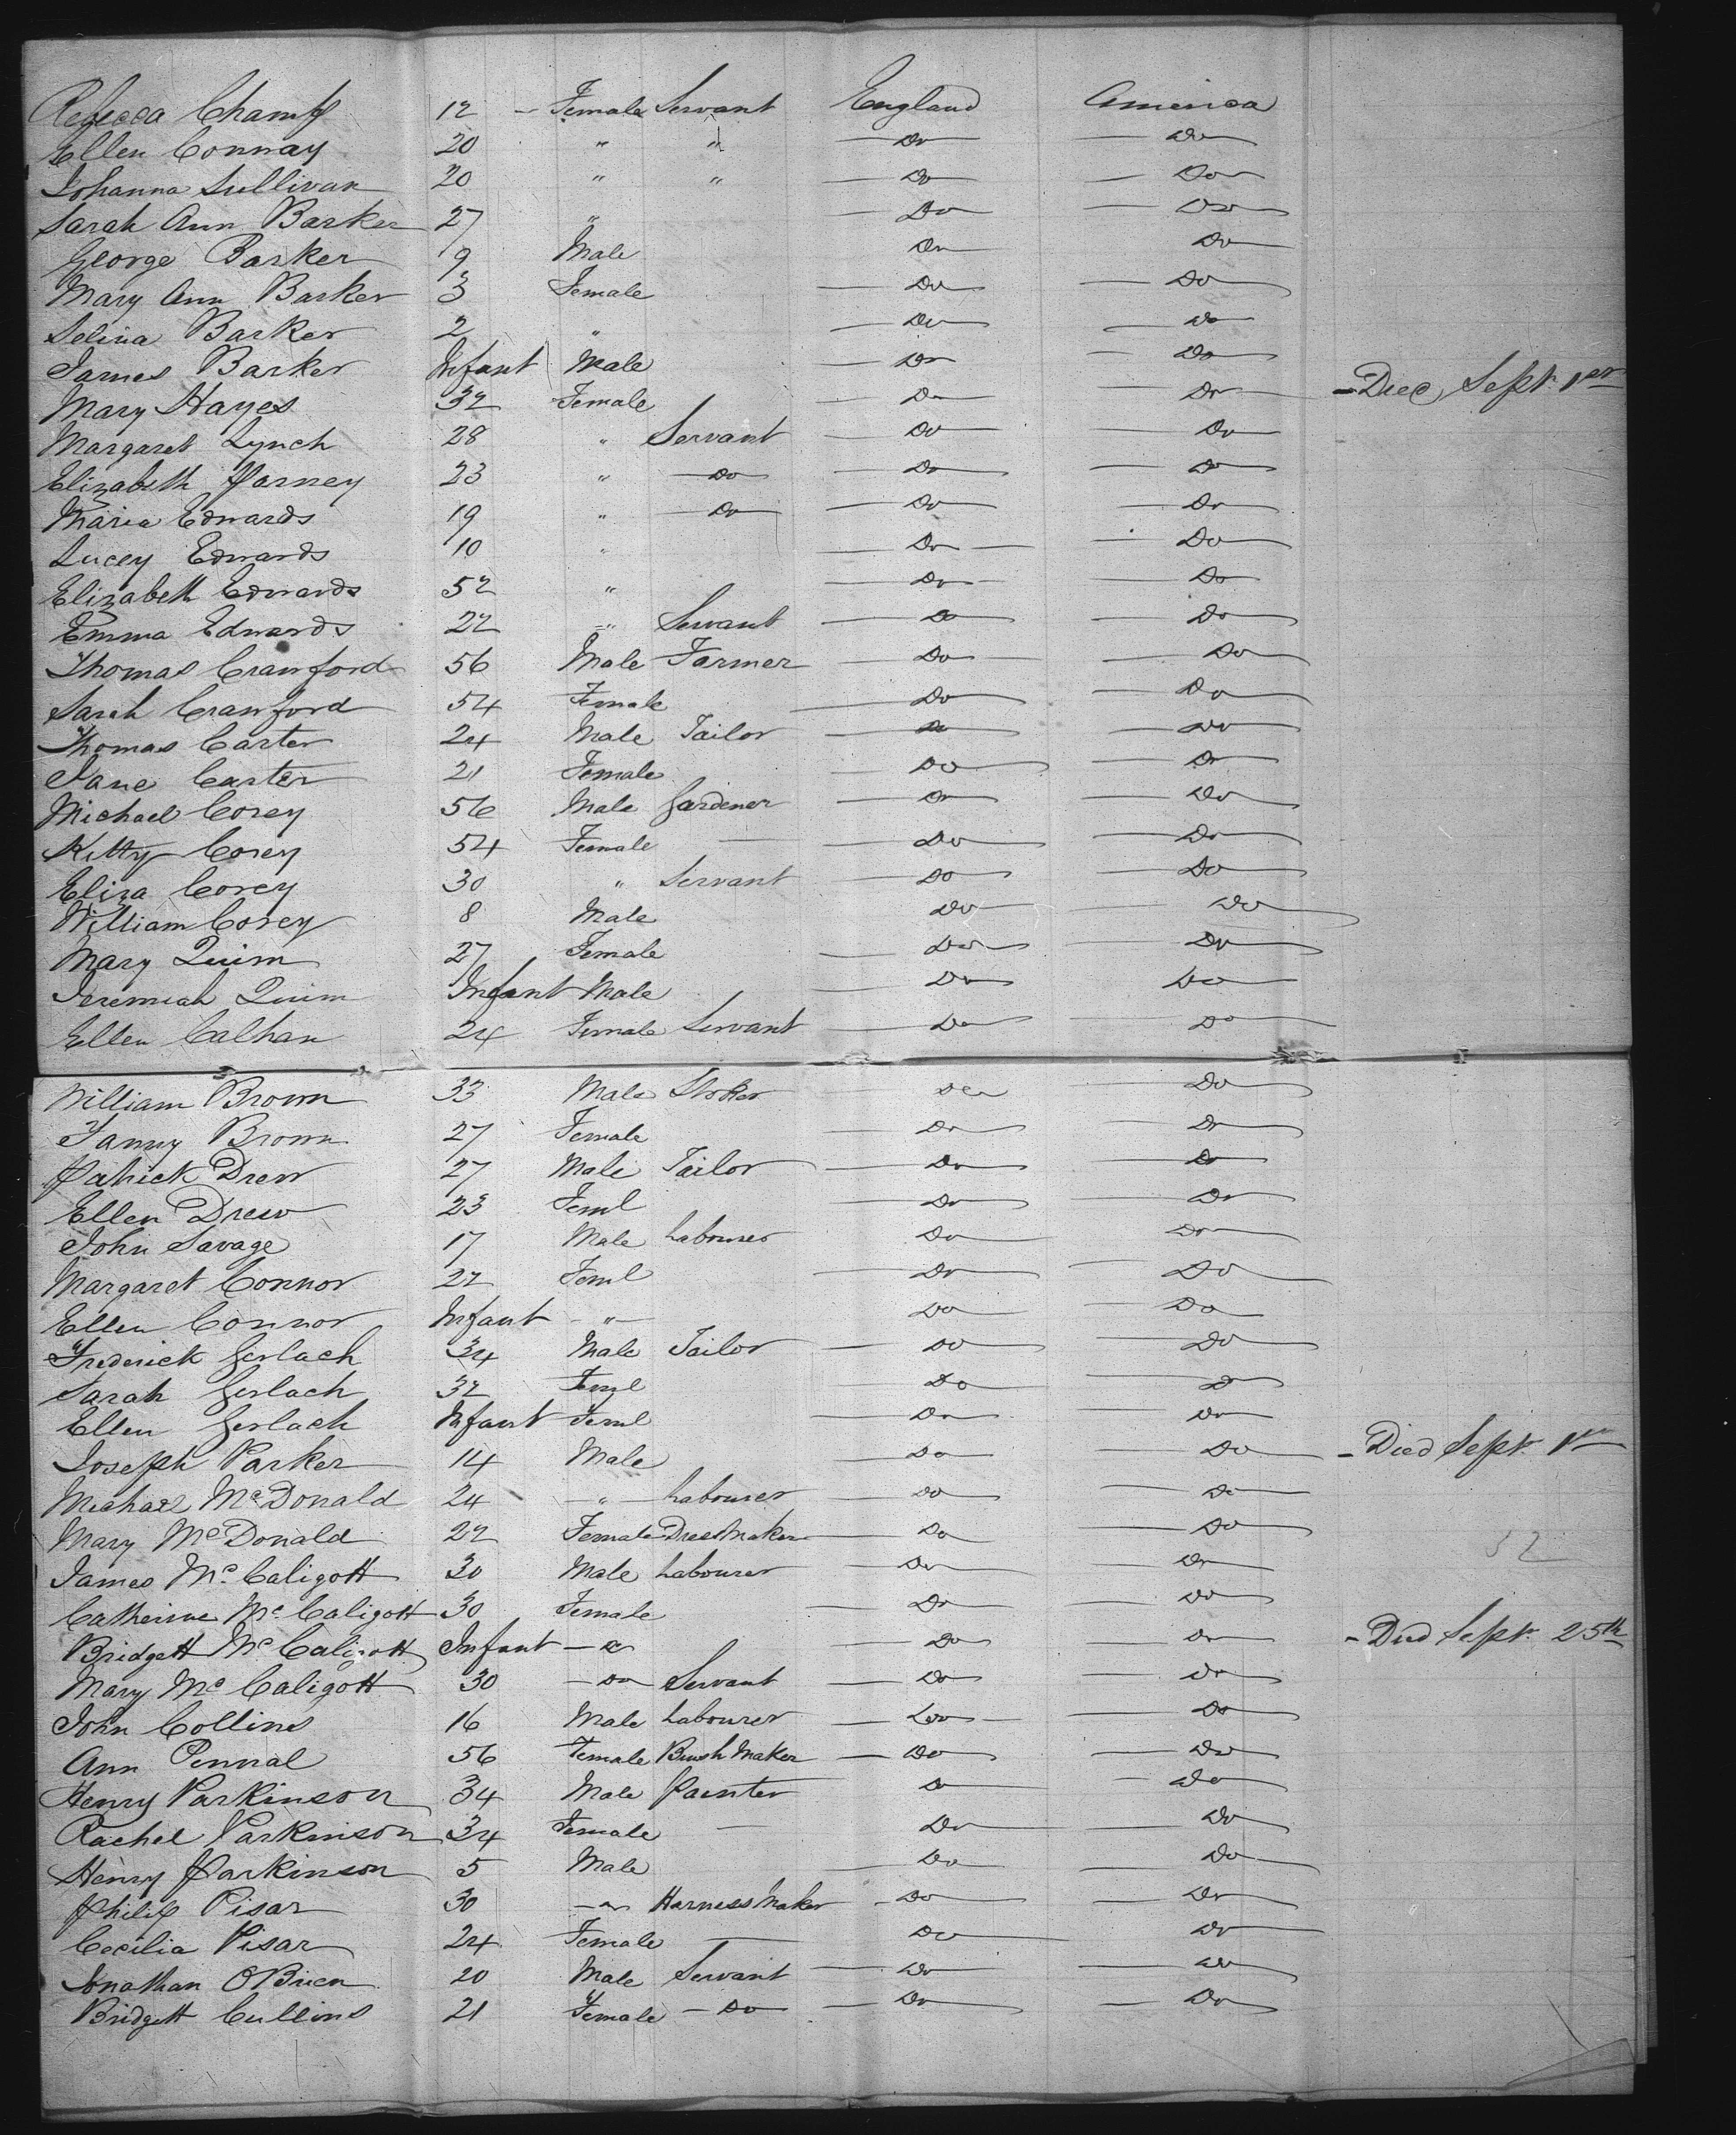 Rebecca Champ 12 - Female Servant England America
Ellen Connay 20 " " Do Do
Johanna Sullivan 20 " " Do Do
Sarah Ann Barker 27 " Do Do
George Barker 9 Male Do Do
Mary Ann Barker 3 Female Do Do
Selina Barker 2 " Do Do
James Barker Infant Male Do Do - Died Sept. 1st
Mary Hayes 32 Female Do Do
Margaret Lynch 28 " Servant Do Do
Elizabeth Varney 23 " Do Do Do
Maria Edwards 19 " Do Do Do
Lucey Edwards 10 " Do Do
Elizabeth Edwards 52 " Do Do
Emma Edwards 22 " Servant Do Do
Thomas Crawford 56 Male Farmer Do Do
Sarah Crawford 54 Female Do Do
Thomas Carter 24 Male Tailor Do Do
Jane Carter 21 Female Do Do
Michael Corey 56 Male Gardener Do Do
Kitty Corey 54 Female — Do Do
Eliza Corey 30 " Servant Do Do
William Corey 8 Male Do Do
Mary Quinn 27 Female Do Do
Jeremiah Quinn Infant Male Do Do
Ellen Calhan 24 Female Servant Do Do
William Brown 33 Male Stoker Do Do
Fanny Brown 27 Female Do Do
Patrick Drew 27 Male Tailor Do Do
Ellen Drew 23 Feml Do Do
John Savage 17 Male Labourer Do Do
Margaret Connor 22 Feml Do Do
Ellen Connor Infant " Do Do
Frederick Gerlach 34 Male Tailor Do Do
Sarah Gerlach 32 Feml Do Do
Ellen Gerlach Infant Feml Do Do - Died Sept. 1st
Joseph Parker 14 Male Do Do
Michael McDonald 24 " Labourer Do Do
Mary McDonald 22 Female DressMaker Do Do 32
James McCaligott 30 Male Labourer Do Do
Catherine McCaligott 30 Female Do Do
Bridgett McCaligott Infant - Do Do Do - Died Sept. 25th
Mary McCaligott 30 - Do Servant Do Do
John Collins 16 Male Labourer Do Do
Ann Pennal 56 Female Brush Maker Do Do
Henry Parkinson 34 Male Painter Do Do
Rachel Parkinson 34 Female — Do Do
Henry Parkinson 5 Male Do Do
Philip Pisar 30 - Do Harness Maker Do Do
Cecilia Pisar 24 Female — Do Do
Jonathan OBrien 20 Male Servant Do Do
Bridgett Cullins 21 Female - Do Do Do